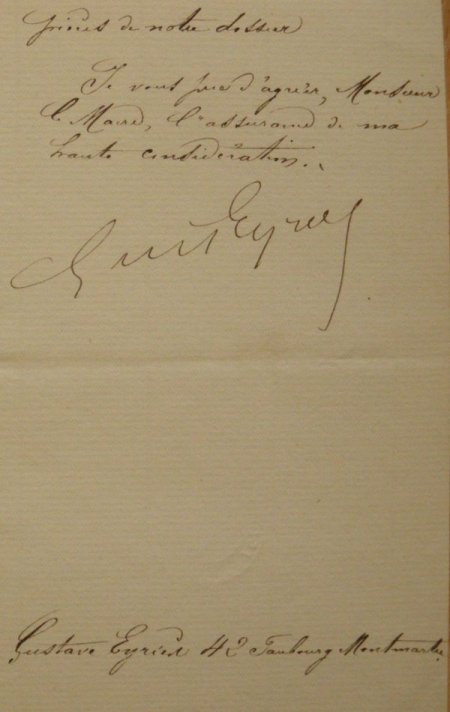 pièces de notre dossier
Je vous prie d'agréer, Monsieur
le Maire, l'assurance de ma
haute considération.
Gust Eyriès
Gustave Eyriès 42 Faubourg Montmartre